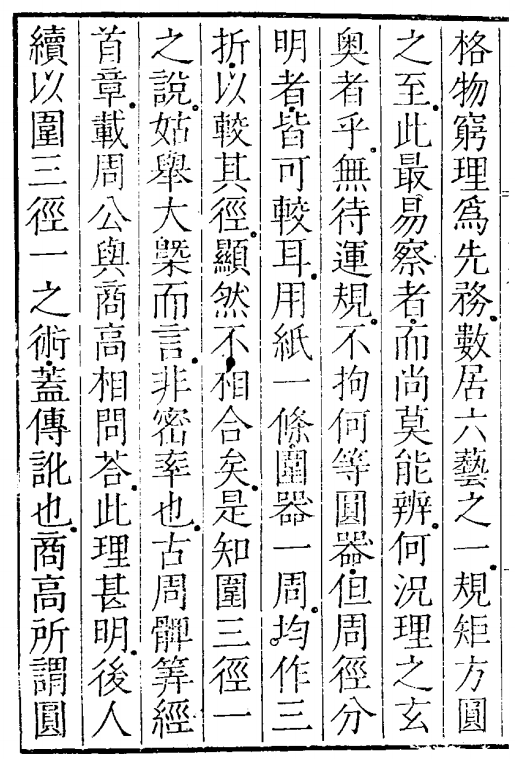 格物窮理爲先務數居六藝之一規矩方圓
之至此最易察者而尚莫能辨何況理之玄
奥者乎無待運規不拘何等圓器但周徑分
明者皆可較耳用紙一條圍器一周均作三
折以較其徑顯然不相合矣是知圍三徑一
之說姑舉大槩而言非密率也古周髀筭經
首章載周公與商高相問荅此理甚明後人
續以圍三徑一之術蓋傳訛也商高所謂圓